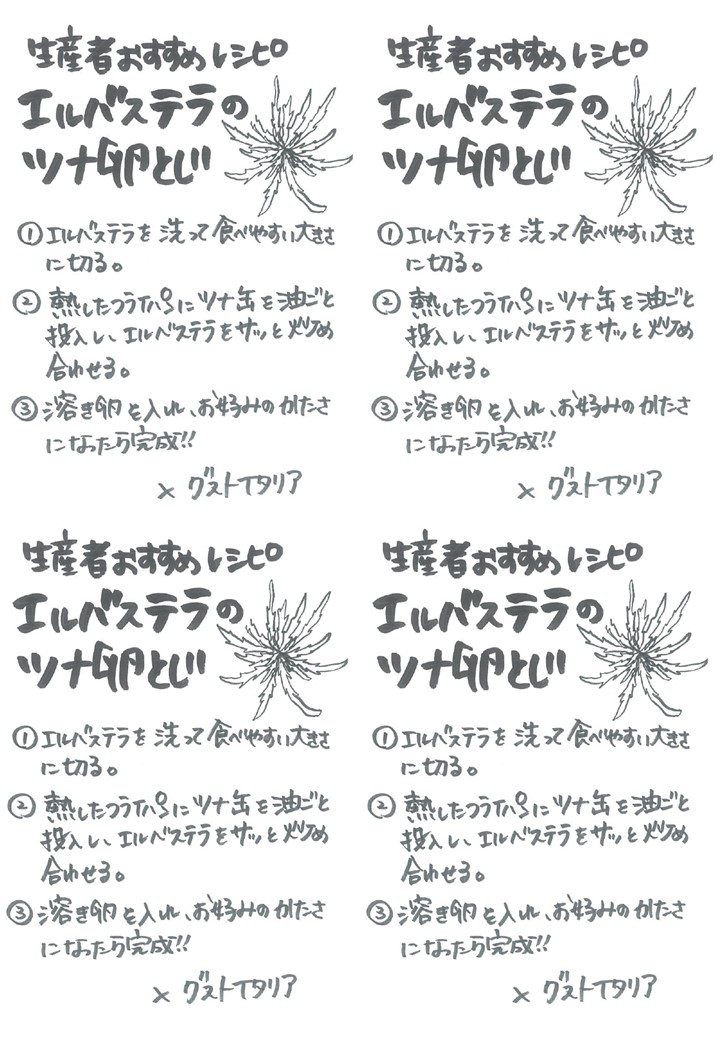 生産者おすすめレシピ
エルバステラの
ツナ卵とじ
①エルバステラを洗って食べやすい大きさ
に切る。
②熱したフライパンにツナ缶を油ごと
投入し、エルバステラをサッと炒め
合わせる。
③溶き卵を入れ、お好みのかたさ
になったら完成!!
× グストイタリア
生産者おすすめレシピ
エルバステラの
ツナ卵とじ
①エルバステラを洗って食べやすい大きさ
に切る。
②熱したフライパンにツナ缶を油ごと
投入し、エルバステラをサッと炒め
合わせる。
③溶き卵を入れ、お好みのかたさ
になったら完成!!
× グストイタリア
生産者おすすめレシピ
エルバステラの
ツナ卵とじ
①エルバステラを洗って食べやすい大きさ
に切る。
②熱したフライパンにツナ缶を油ごと
投入し、エルバステラをサッと炒め
合わせる。
③溶き卵を入れ、お好みのかたさ
になったら完成!!
× グストイタリア
生産者おすすめレシピ
エルバステラの
ツナ卵とじ
①エルバステラを洗って食べやすい大きさ
に切る。
②熱したフライパンにツナ缶を油ごと
投入し、エルバステラをサッと炒め
合わせる。
③溶き卵を入れ、お好みのかたさ
になったら完成!!
× グストイタリア